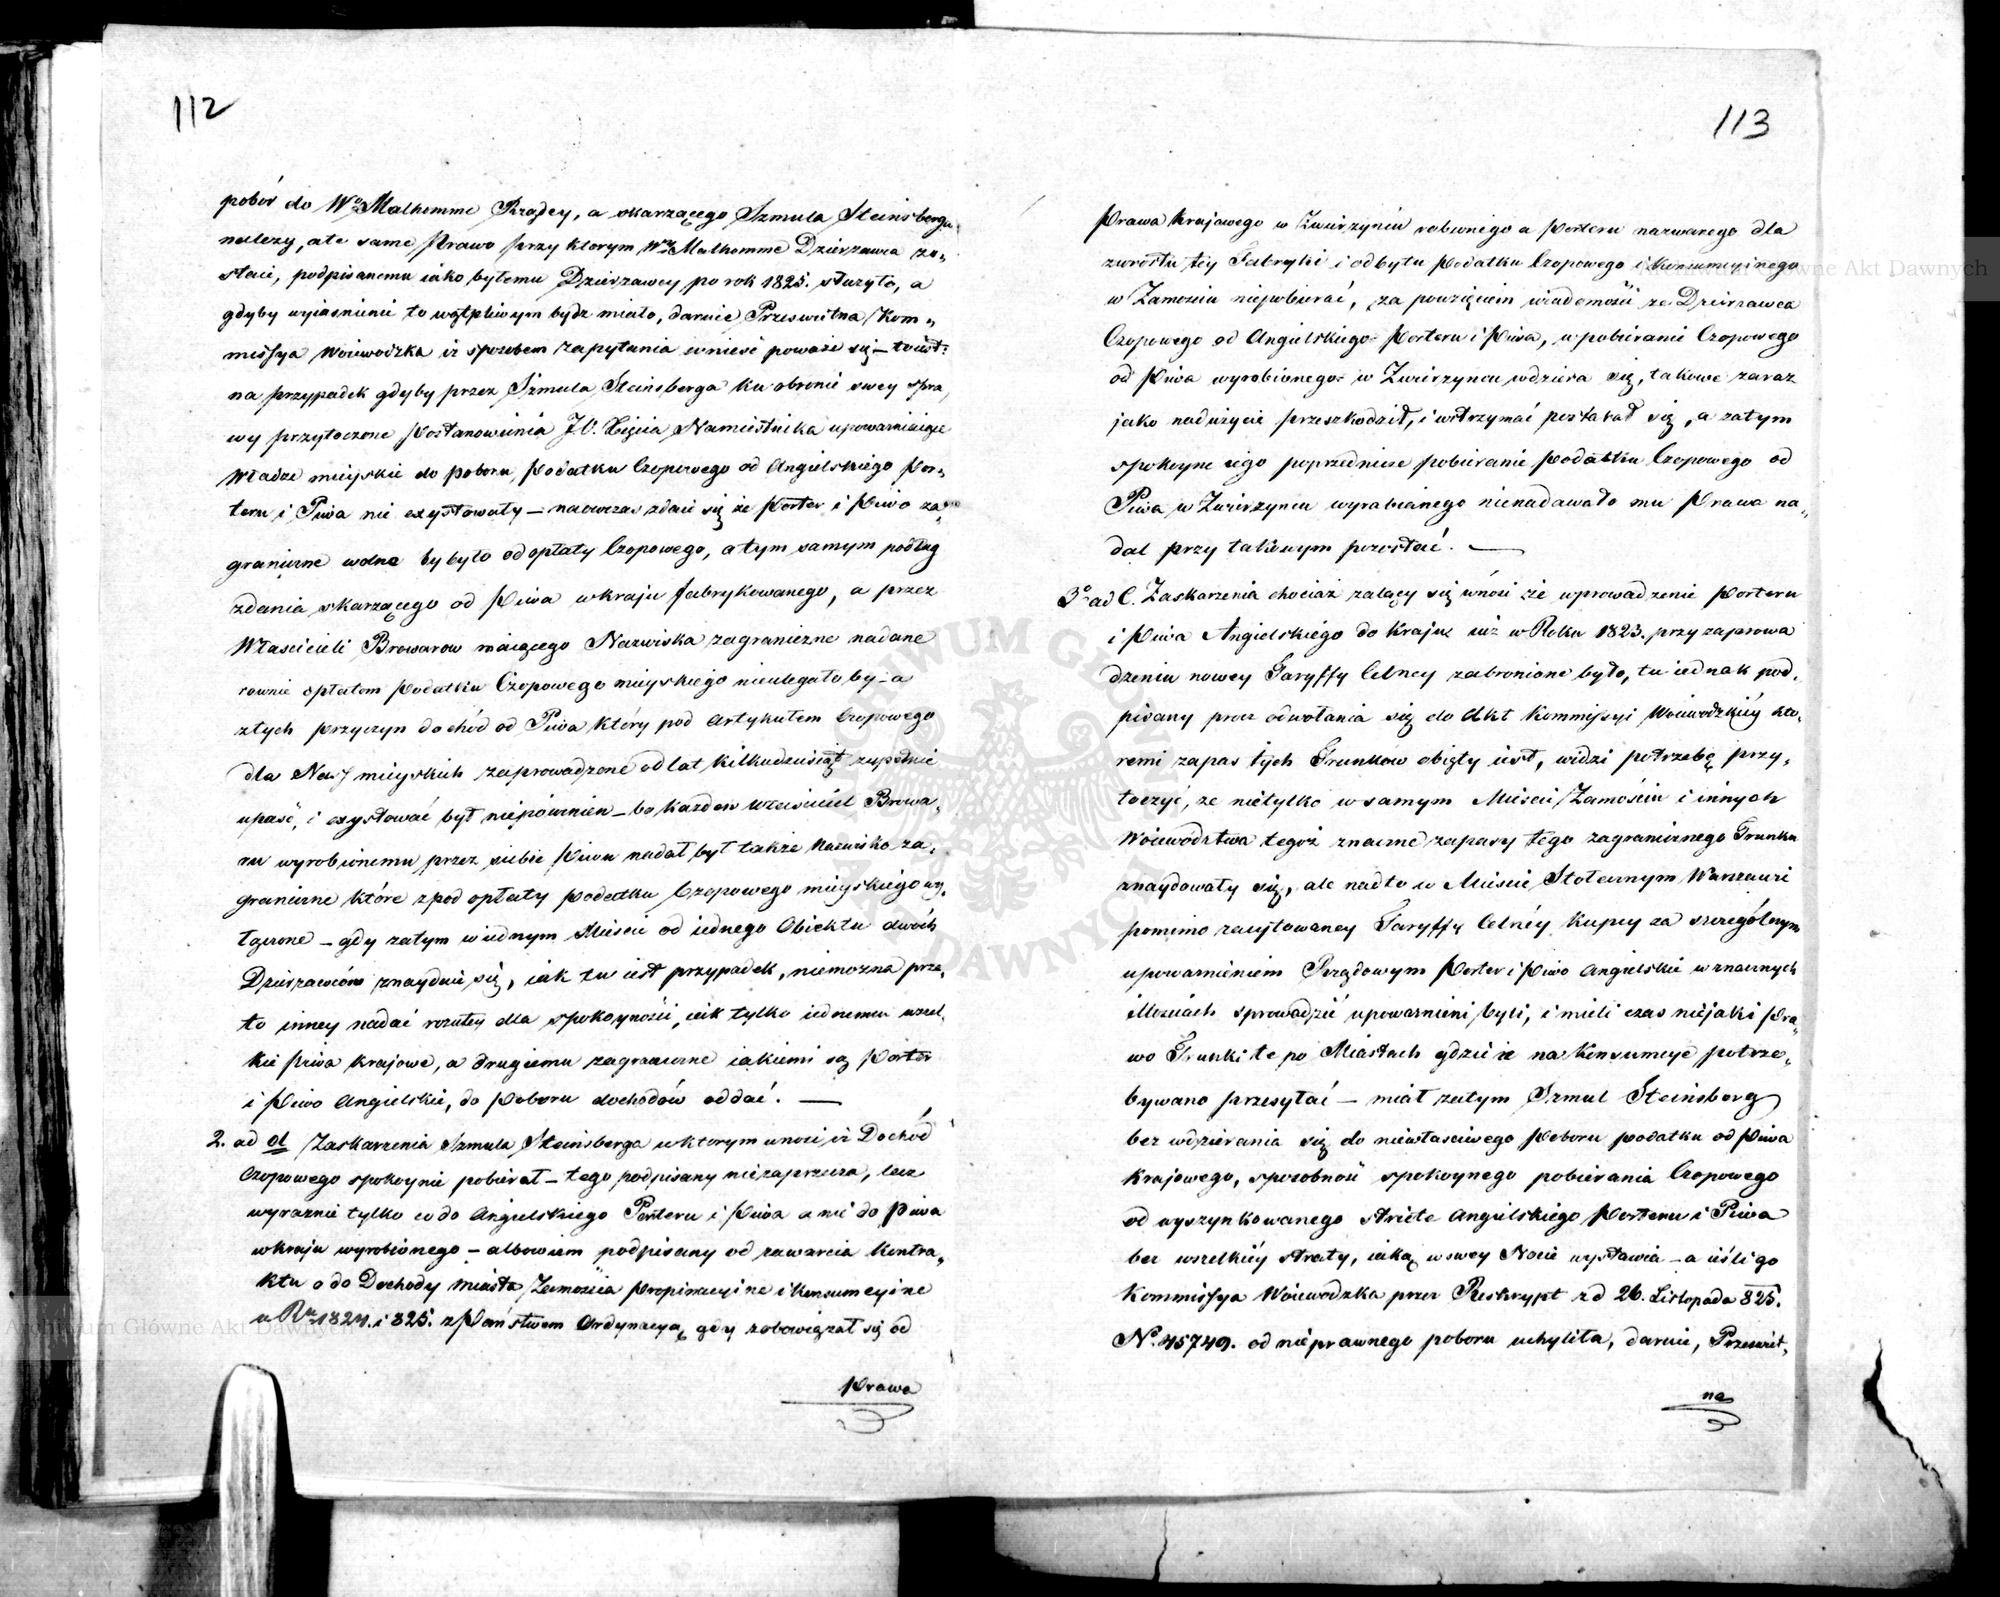 112
pobór do Wo Malhomme Rządcy, a skarzącego Szmula Steinsberga
nalezy, ale same Prawo przy ktorym Wny Malhomme Dzierzawca zo„
staie, podpisanemu iako bytemu Dzierzawcy po rok 1825. słuzyło, a
gdyby wyiasnienie to wątpliwym bydz miało, daruie Przeswietna Kom„
missya Woiewodzka iz sposobem zapytania wnieść poważe się – to iest:
na przypadek gdyby przez Szmula Steinsberga ku obronie swey spra„
wy przytoczone Postanowienia J.O. Xięcia Namiestnika upowazniaiące
Władze mieyskie do poboru Podatku Czopowego od Angielskiego Por„
teru i Piwa nie exystowały – naowczas zdaie się że Porter i Piwo za„
graniczne wolne by było od opłaty Czopowego, a tym samym podług
zdania skarzącego od Piwa w kraju fabrykowanego, a przez
Właścicieli Browarow maiącego Nazwiska zagraniczne nadane
rownie opłatom Podatku Czopowego mieyskiego nieulegało by – a
z tych przyczyn dochód od Piwa który pod Artykułem Czopowego
dla Kass mieyskich zaprowadzone od lat kilkudziesiąt zupełnie
upaść, i exystować był niepowinien – bo każden właściciel Browa„
ru wyrobionemu przez siebie Piwu nadał był także nazwisko za„
graniczne które z pod opłaty podatku Czopowego mieyskiego wy„
łączone – gdy zatym w iednym Miescie od iednego Obiektu dwóch
Dzierzawców znayduie się, iak tu iest przypadek, niemozna prze„
to inney nadać rozciąg dla spokoyności, iak tylko iednemu wszel„
kie piwa krajowe, a drugiemu zagraniczne iakiemi są Porter
i Piwo Angielskie, do Poboru dochodów oddać. —
2. ad a Zaskarzenia Szmula Steinsberga w ktorym wnosi iz Dochód
Czopowego spokoynie pobierał – tego podpisany niezaprzecza, lecz
wyraznie tylko co do Angielskiego Porteru i Piwa a nie do Piwa
w kraju wyrobionego – albowiem podpisany od zawarcia Kontra„
ktu o do Dochody Miasta Zamościa Propinacyine i Konsumcyine
w Rku 1824. i 825. z Państwem Ordynacyą, gdy zobowiązał się od
Prawa
113
Prawa krajowego w Zwierzyńcu robionego a Porteru nazwanego dla
zwrostu tey Fabryki i odbytu Podatku Czopowego i Konsumcyinego
w Zamosciu niepobierać, za powzięciem wiadomości ze Dzierzawca
Czopowego od Angielskiego Porteru i Piwa, w pobieranie Czopowego
od Piwa wyrobionego w Zwierzyncu wdziera się, takowe zaraz
jako naduzycie przeszkodził, i wstrzymać postarał się, a zatym
spokoyne iego poprzednicze pobieranie podatku Czopowego od
Piwa w Zwierzyncu wyrabianego nienadawało mu Prawa na„
dal przy takowym pozostać. —
3o ad C. Zaskarzenia chociaż załący się wnosi że uprowadzenie Porteru
i Piwa Angielskiego do Kraju iuz w Roku 1823. przy zaprowa
dzeniu nowey Taryffy Celney zabronione było, tu iednak pod„
pisany procz odwołania się do Akt Kommissyi Woiewodzkiey kto„
remi zapas tych Trunkow obięty iest, widzi potrzebę przy„
toczyć, ze nietylko w samym Mieście Zamościu i innych
Woiewodztwa tegoż znaczne zapasy tego zagranicznego Trunku
znaydowały się, ale nadto w Miescie Stołecznym Warszawie
pomimo zacytowaney Taryffy Celnéy Kupcy za szczególnym
upoważnieniem Rządowym Porter i Piwo Angielskie w znacznych
ilosciach sprowadzić upowaznieni byli, i mieli czas niejaki Pra„
wo Trunki te po Miastach gdzie ie na Konsumcyę potrze„
bywano przesyłać – miał zatym Szmul Steinsberg
bez wdzierania się do niewłasciwego Poboru podatku od Piwa
krajowego, sposobność spokoynego pobierania Czopowego
od wyszynkowanego stricte Angielskiego Porteru i Piwa
bez wszelkiéy straty, iaką w swey Nocie wystawia – a ieśli go
Kommissya Woiewodzka przez Reskrypt z d 26. Listopada 825.
No. 45749. od nieprawnego poboru uchyliła, daruie, Przeswiet„
na